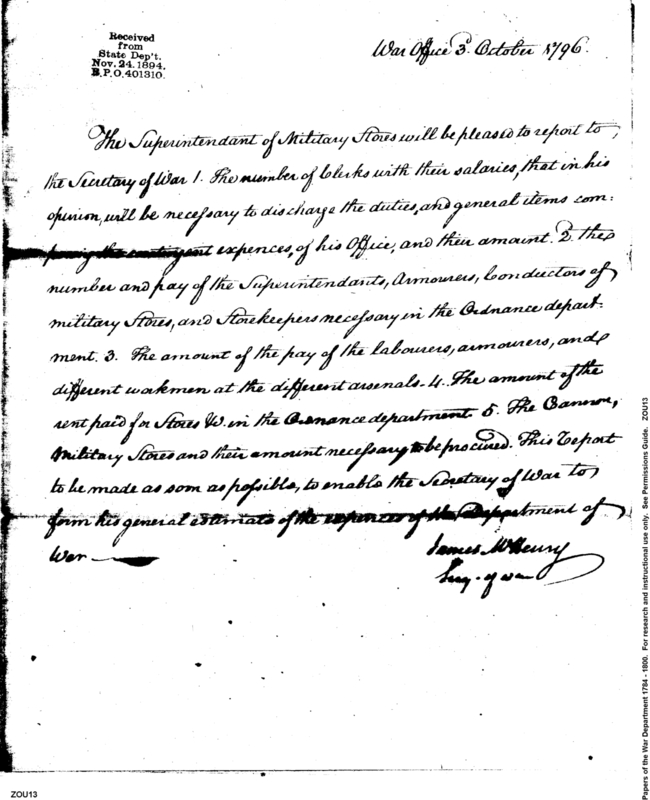 Received
from
State Dep't.
Nov. 24. 1894.
B.P.O. 401310.
War Office 3d. October 1796.
The Superintendant of Military Stores will be pleased to report to
the Secretary of War 1. The number of Clerks with their salaries, that in his
opinion, will be necessary to discharge the duties, and general items com=
posing the contingent expences, of his Office, and their amount. 2d. the
number and pay of the Superintendants, Armourers, Conductors of
military Stores, and Storekeepers necessary in the Ordnance depart-
ment. 3. The amount of the pay of the labourers, armourers, and
different workmen at the different arsenals. 4. The amount of the
rent paid for Stores &c. in the Ordnance department. 5. The Cannon,
Military Stores and their amount necessary to be procured. This Report
to be made as soon as possible, to enable the Secretary of War to
form his general estimate of the expences of the Department of
War
James McHenry
Secy. of war
ZOU13
Papers of the War Department 1784 - 1800. For research and instructional use only. See Permissions Guide. ZOU13